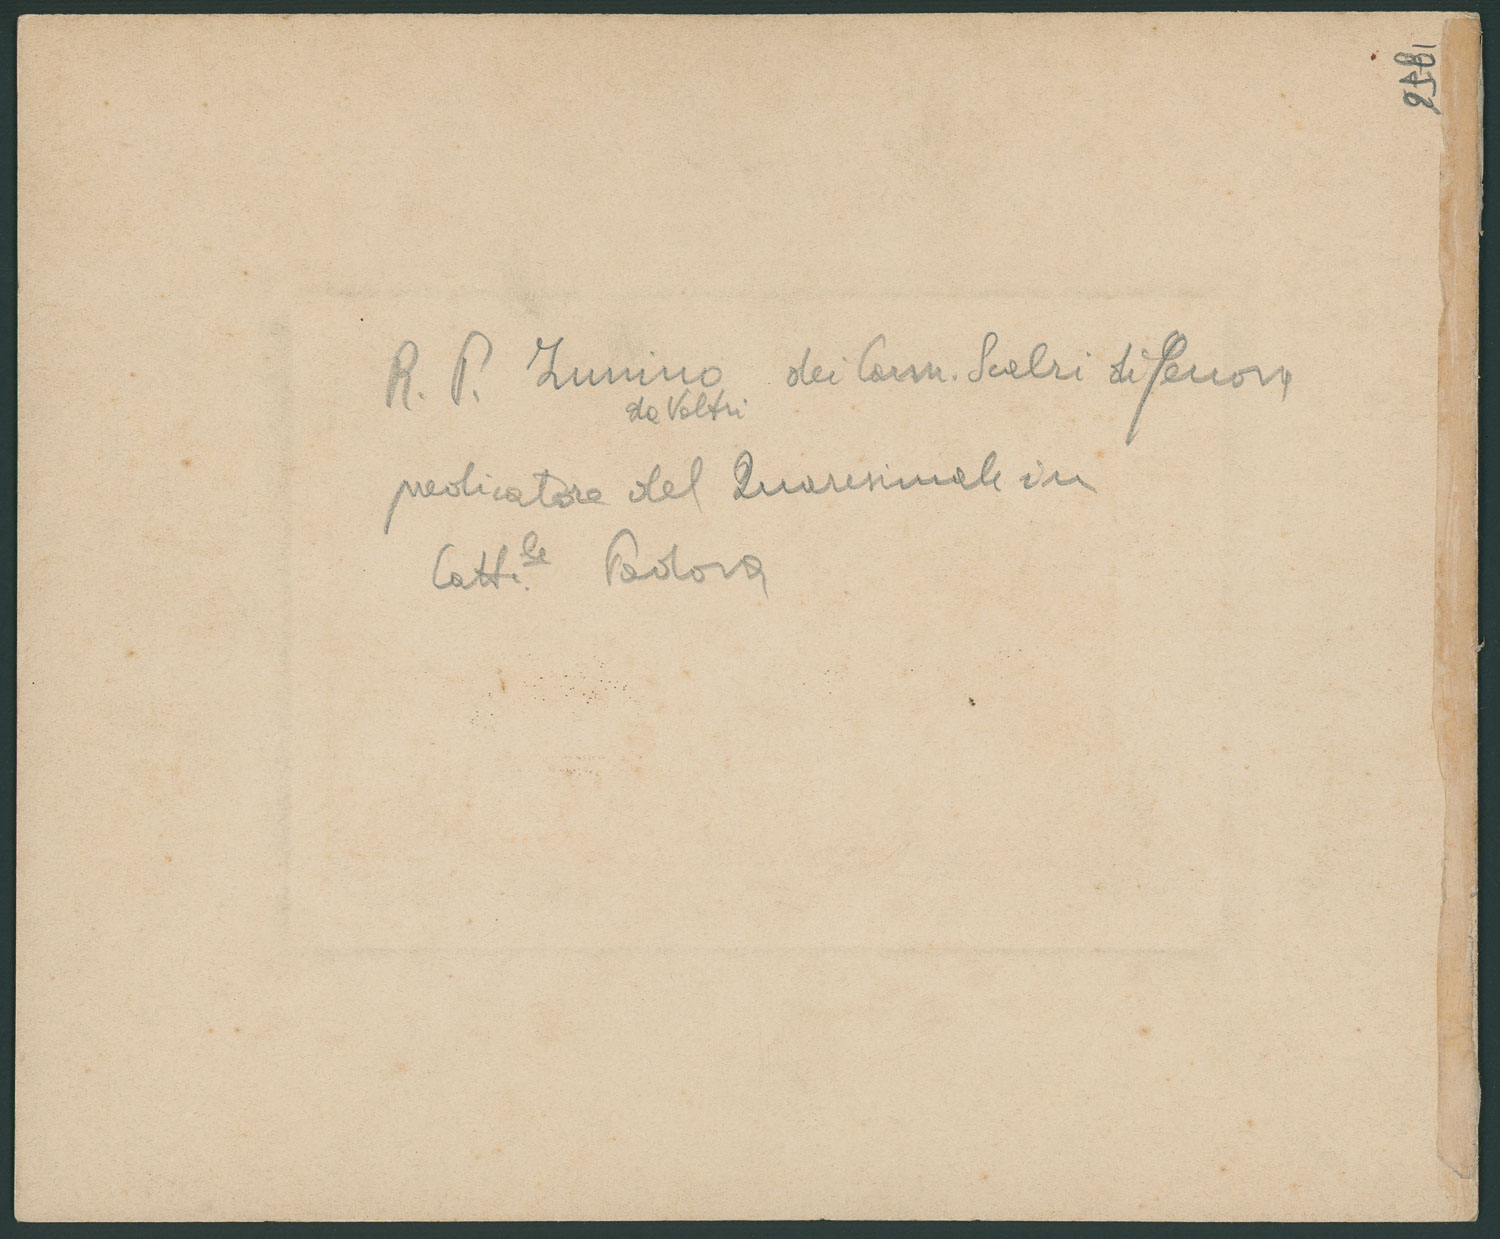 R. P. Zunino dei Carm. Scalzi di Genova
da Voltri
predicatore del Quaresimale in
Catt.le Padova